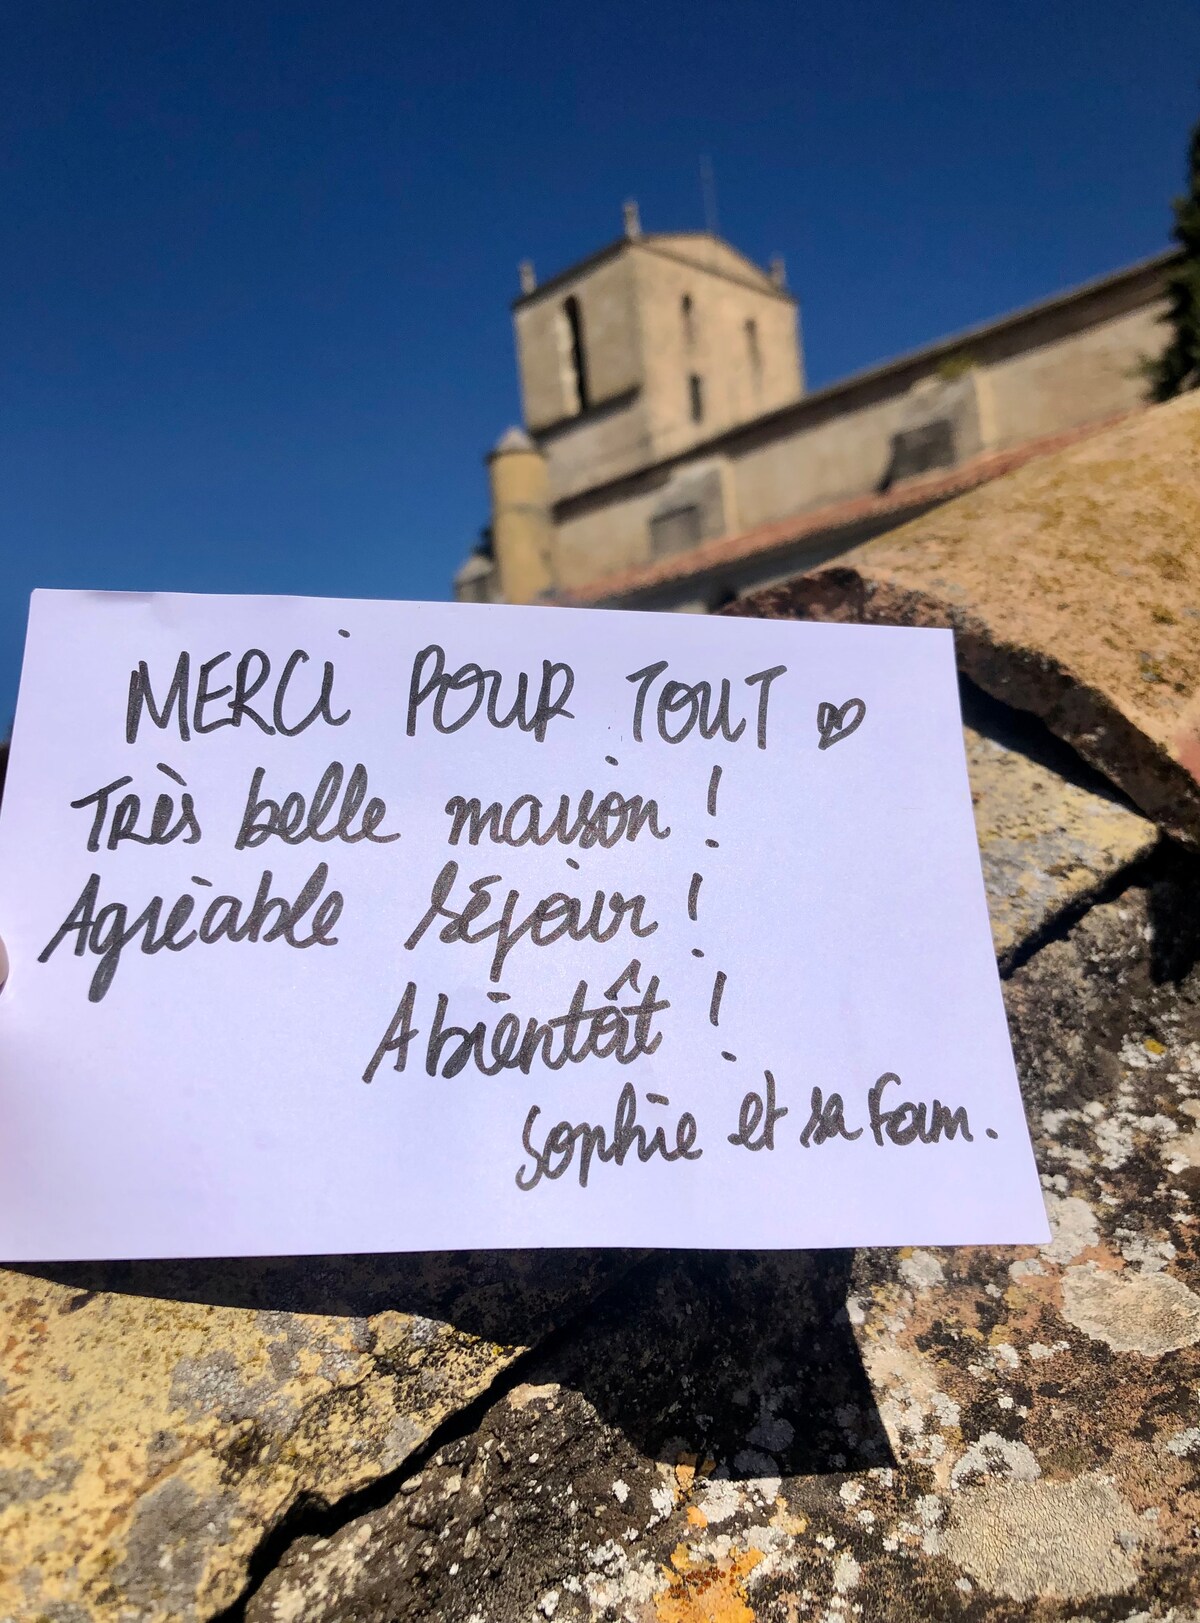 MERCi POUR TOUT ♡
Très belle maison !
Agréable séjour !
A bientôt !
Sophie et sa fam.